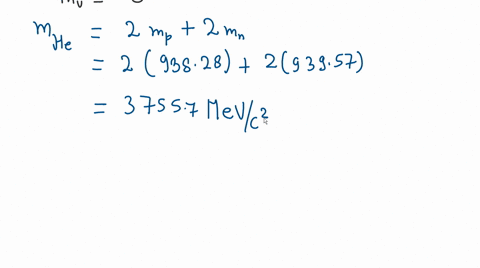 m_He = 2 m_p + 2 m_n
= 2 (938.28) + 2(939.57)
= 3755.7 MeV/c²